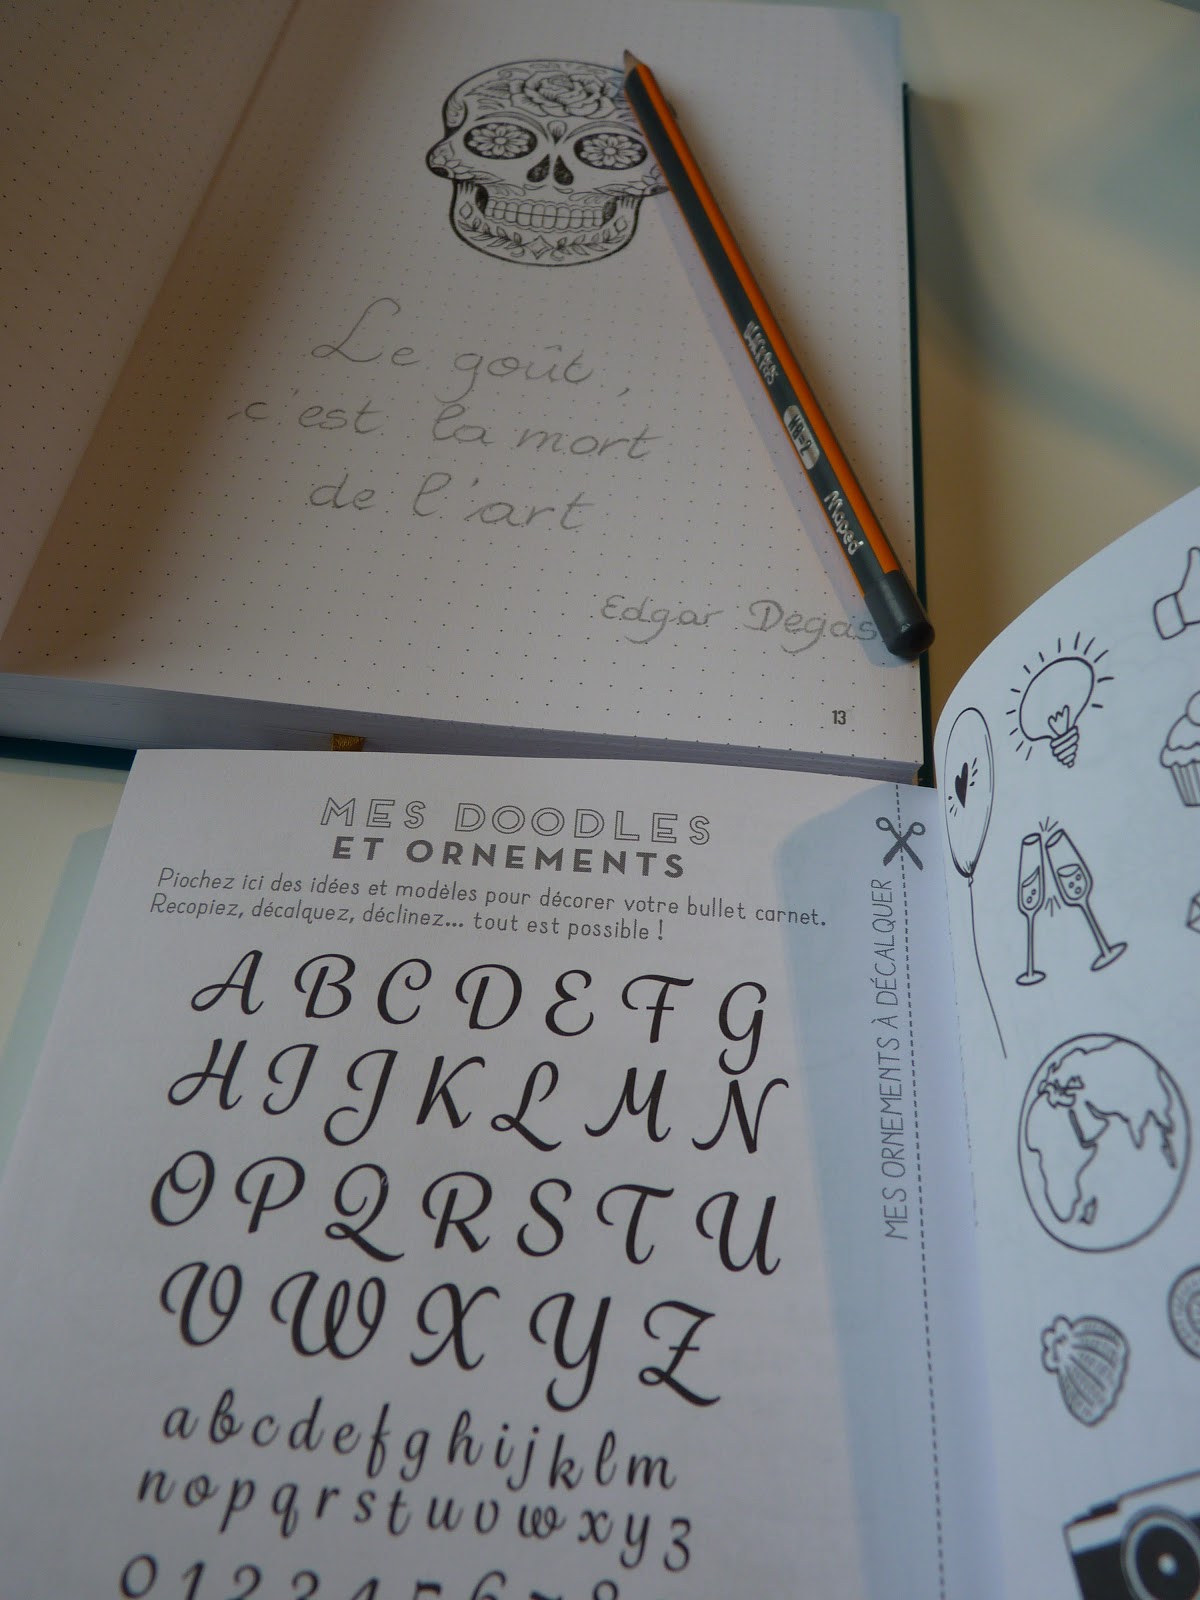 Le goût,
c'est la mort
de l'art
Edgar Degas
HB=2
Maped
13
MES DOODLES
ET ORNEMENTS
Piochez ici des idées et modèles pour décorer votre bullet carnet.
Recopiez, décalquez, déclinez... tout est possible !
A B C D E F G
H I J K L M N
O P Q R S T U
V W X Y Z
a b c d e f g h i j k l m
n o p q r s t u v w x y z
0 1 2 3 4 5 6 7 8
MES ORNEMENTS À DÉCALQUER